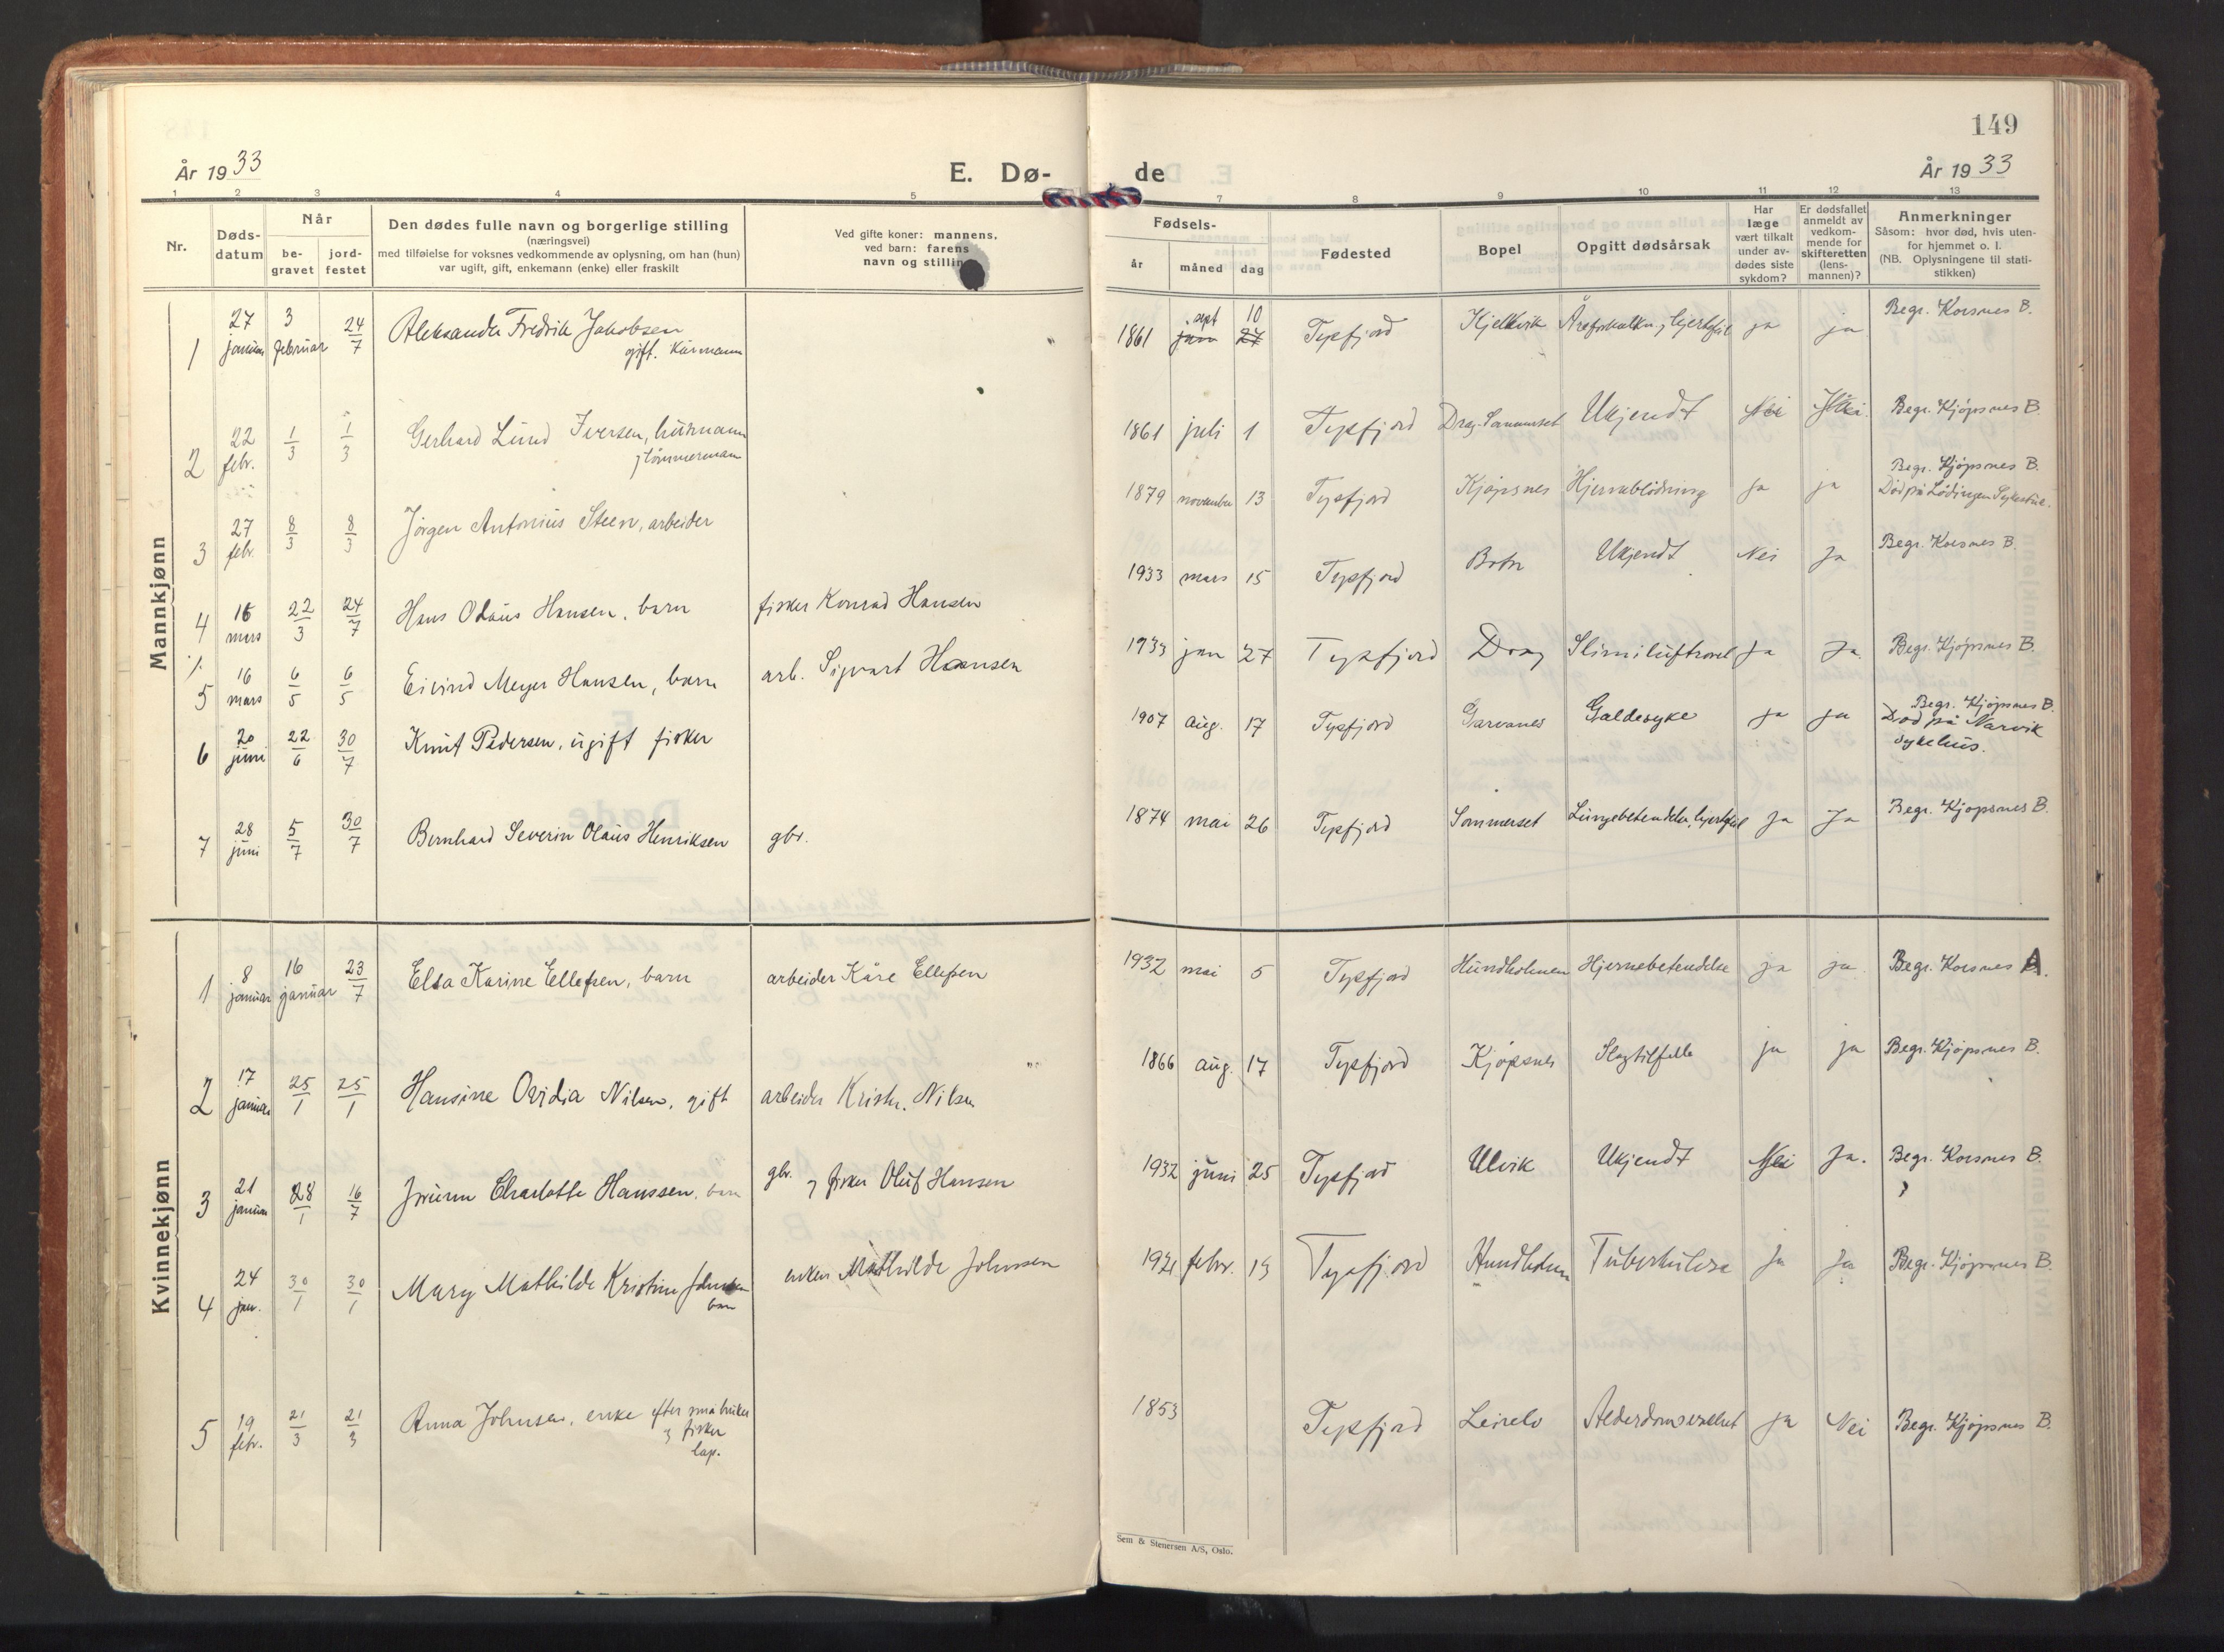 149
År 1933
E. Dø-
de
År 1933
1 2 3 4 5 7 8 9 10 11 12 13
Nr.
Døds-
datum
Når
be-
gravet
jord-
festet
Den dødes fulle navn og borgerlige stilling
(næringsvei)
med tilføielse for voksnes vedkommende av oplysning, om han (hun)
var ugift, gift, enkemann (enke) eller fraskilt
Ved gifte koner: mannens,
ved barn: farens
navn og stilling
Fødsels-
år
måned
dag
Fødested
Bopel
Opgitt dødsårsak
Har
læge
vært tilkalt
under av-
dødes siste
sykdom?
Er dødsfallet
anmeldt av
vedkom-
mende for
skifteretten
(lens-
mannen)?
Anmerkninger
Såsom: hvor død, hvis uten-
for hjemmet o. l.
(NB. Oplysningene til stati-
stikken)
Mannkjønn
1 27 januar 3 februar 24/7 Aleksander Fredrik Jakobsen
gift. Kårmann
1861 sept 10 Tysfjord Kjelkvik Åreforkalkn. j hjertefeil ja ja Begr. Korsnes B.
2 22 febr. 1/3 1/3 Gerhard Lund Iversen, husmann
j tömmermann
1861 juli 1 Tysfjord Drag-Sommerset Ukjendt Nei Nei. Begr. Kjöpsnes B.
3 27 febr. 8/3 8/3 Jörgen Antonius Steen, arbeider
1879 november 13 Tysfjord Kjöpsnes Hjerneblödning ja ja Begr. Kjöpsnes B.
Död på Lödingen Sykestue.
4 16 mars 22/3 24/7 Hans Olaus Hansen, barn fisker Konrad Hansen
1933 mars 15 Tysfjord Botn Ukjendt Nei Ja Begr. Korsnes B.
5 16 mars 6/5 6/5 Eivind Meyer Hansen, barn arb. Sigvart Hansen
1933 jan 27 Tysfjord Drag Slim i luftroret Ja Ja. Begr. Kjöpsnes B.
6 20 juni 22/6 30/7 Knut Pedersen, ugift fisker
1907 aug. 17 Tysfjord Garvanes Galdesyke ja ja Begr. Kjöpsnes B.
Död på Narvik
sykehus.
7 28 juni 5/7 30/7 Bernhard Severin Olaus Henriksen gbr.
1874 mai 26 Tysfjord Sommerset Lungebetendelse, hjertefeil Ja Ja Begr. Kjöpsnes B.
Kvinnekjønn
1 8 januar 16 januar 23/7 Elsa Karine Ellefsen, barn arbeider Kåre Ellefsen
1932 mai 5 Tysfjord Hundholmen Hjernebetendelse ja ja. Begr. Korsnes A.
2 17 januar 25/1 25/1 Hansine Ovidia Nilsen, gift arbeider Kristn. Nilsen
1866 aug. 17 Tysfjord Kjöpsnes Slagtilfelle ja ja Begr. Kjöpsnes B.
3 21 januar 28/1 16/7 Jorunn Charlotte Hanssen, barn gbr. j fisker Oluf Hansen
1932 juni 25 Tysfjord Ulvik Ukjendt Nei Ja. Begr. Korsnes B.
4 24 jan. 30/1 30/1 Mary Mathilde Kristine Johnsen
barn
enken Mathilde Johnsen
febr. Tysfjord Hundholmen Tuberkulose Ja Ja Begr. Kjöpsnes B.
5 19 febr. 21/3 21/3 Anna Johnsen, enke efter småbruker
j fisker
lap.
1853 Tysfjord Leirelv Alderdomsvakhet ja Nei Begr. Kjöpsnes B.
Sem & Stenersen A/S, Oslo.